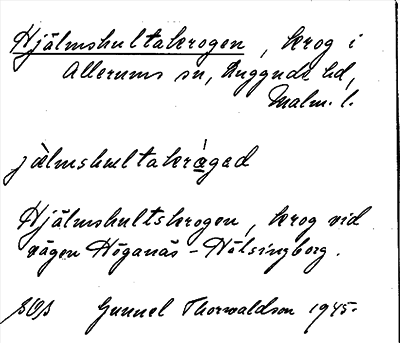 Hjälmshultakrogen, krog i
Allerums sn, Luggude hd,
Malm. l.
jälmshultakrågad
Hjälmshultskrogen, krog vid
vägen Höganäs - Hälsingborg.
Gunnel Thorwaldson 1945.